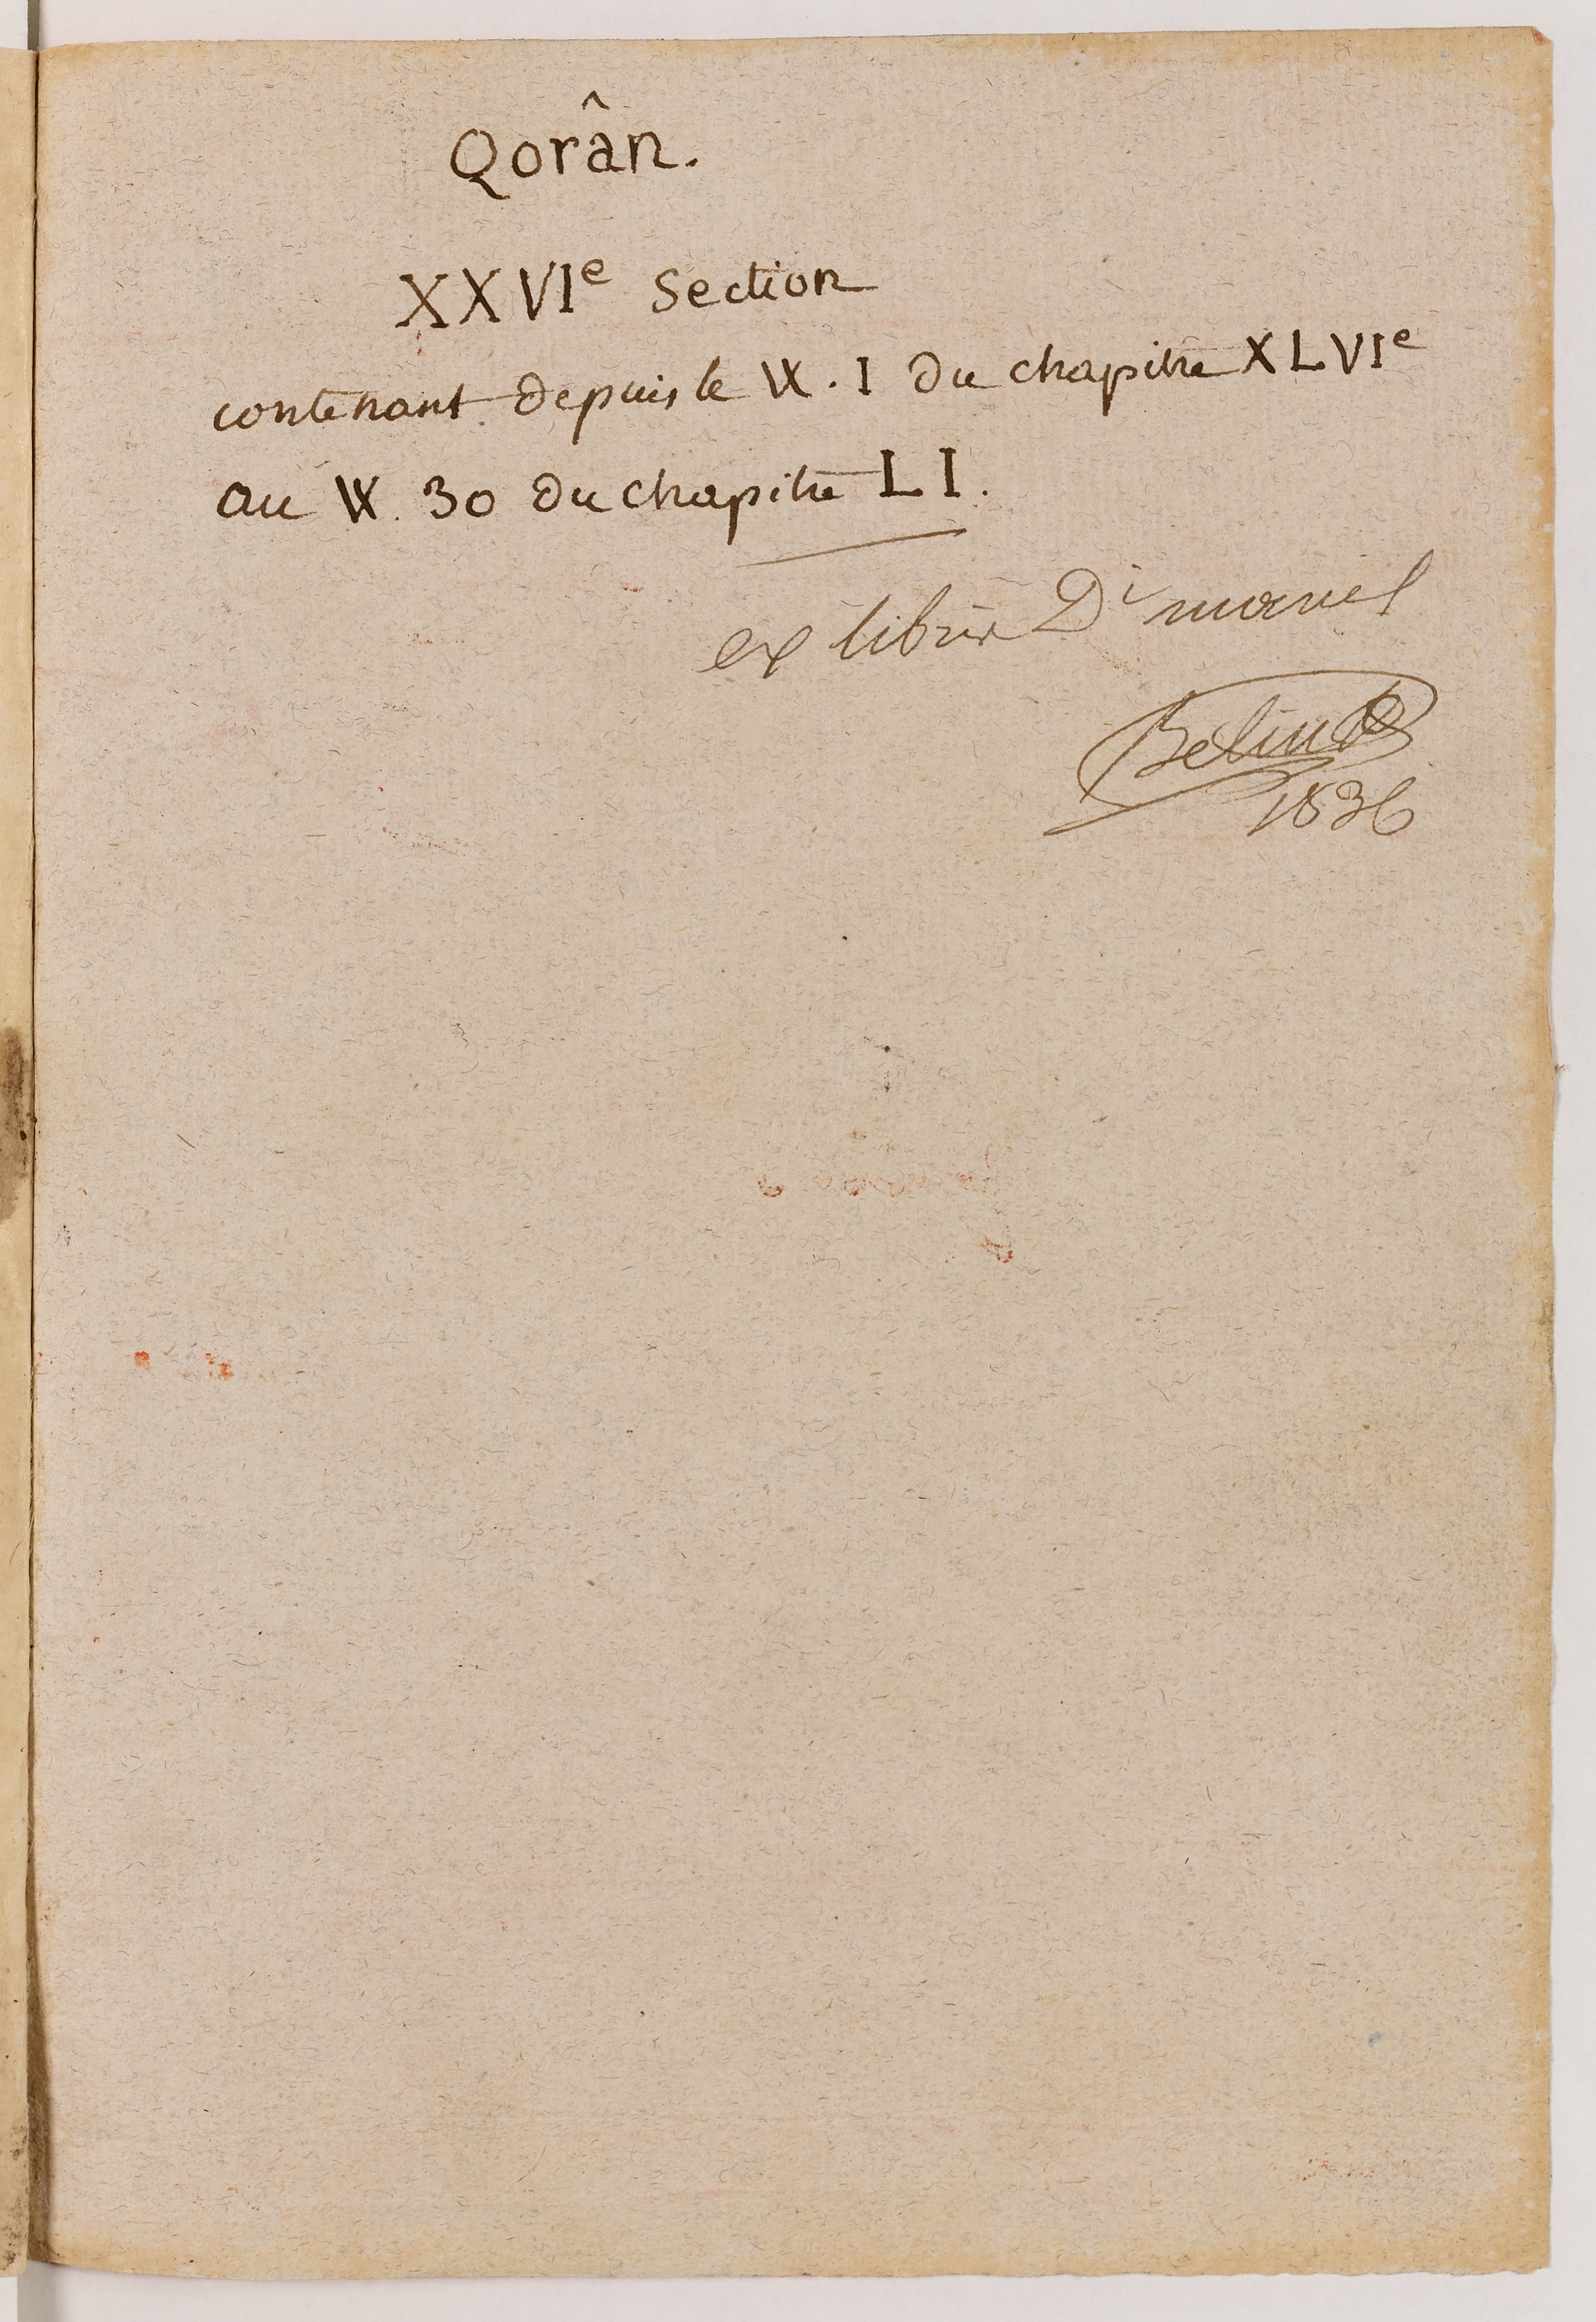 Qorân.
XXVIe Section
contenant depuis le ℣. I du chapitre XLVIe
au ℣. 30 du chapitre LI.
ex libris Di marcel
Belin
1836